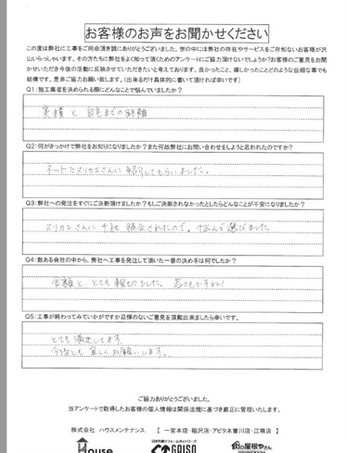 お客様のお声をお聞かせください
この度は弊社に工事をご用命頂き誠にありがとうございました。世の中には弊社の存在やサービスをご存知ないお客様が沢
山いらっしゃいます。その方たちに弊社をよく知って頂くためのアンケートにご協力頂けないでしょうか?お客様のご意見をお聞
かせいただき今後の活動に反映させていただきたいと考えております。良かったこと、嬉しかったことどのような些細な事でも
結構です。是非ご協力お願い致します。(出来るだけ具体的に書いて頂ければ幸いです)
Q1:施工業者を決められる際にどんなことで悩んでいましたか?
実績と自宅までの距離
Q2:何がきっかけで弊社をお知りになりましたか?また何故弊社にお問い合わせをしようと思われたのですか?
ネットでヌリカエさんに紹介してもらいました。
Q3:弊社への発注をすぐにご決断頂けましたか?もしご決断されなかったとしたらどんなことが不安になりましたか?
ヌリカエさんに
選びました
Q4:数ある会社の中から、弊社へ工事を発注して頂いた一番の決め手は何でしたか?
金額と、とても親切でした。
Q5:工事が終わってみていかがですか忌憚のないご意見を頂戴出来ましたら幸いです。
とても満足してます。
今後とも宜しくお願いします。
ご協力ありがとうございました。
当アンケートで取得したお客様の個人情報は関係法規に基づき厳正に管理いたします。
株式会社 ハウスメンテナンス 【 一宮本店・稲沢店・アピタ木曽川店・江南店 】
House
日本外装リフォームネットワーク
GAISO
街の屋根やさん